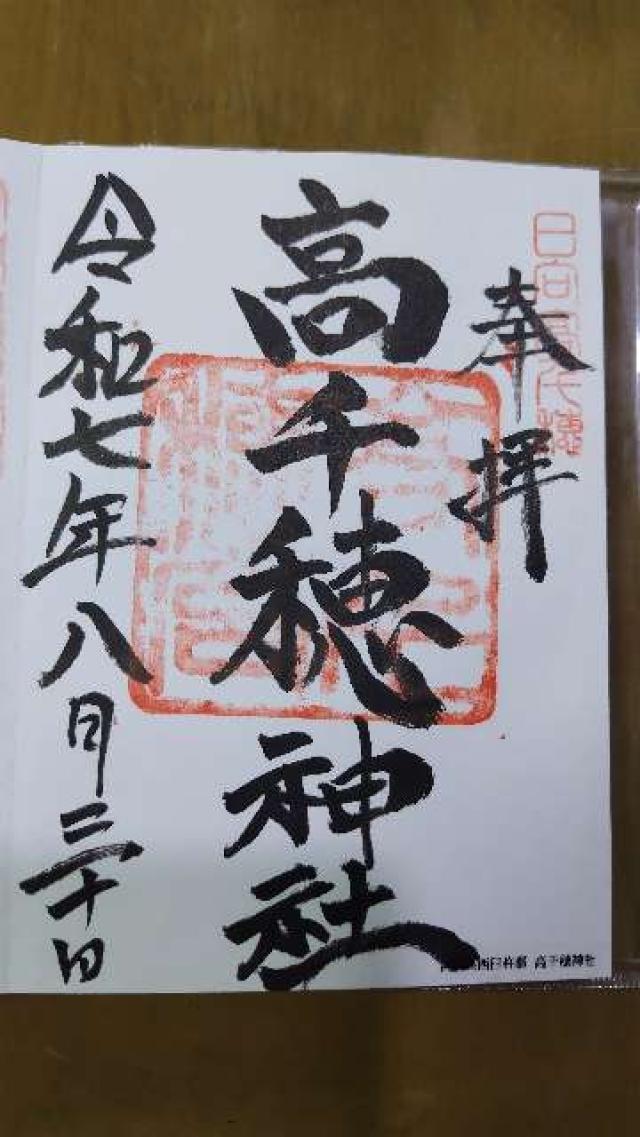 奉拝
日向高千穂
高千穂神社
令和七年八月三十日
西臼杵郡 高千穂神社